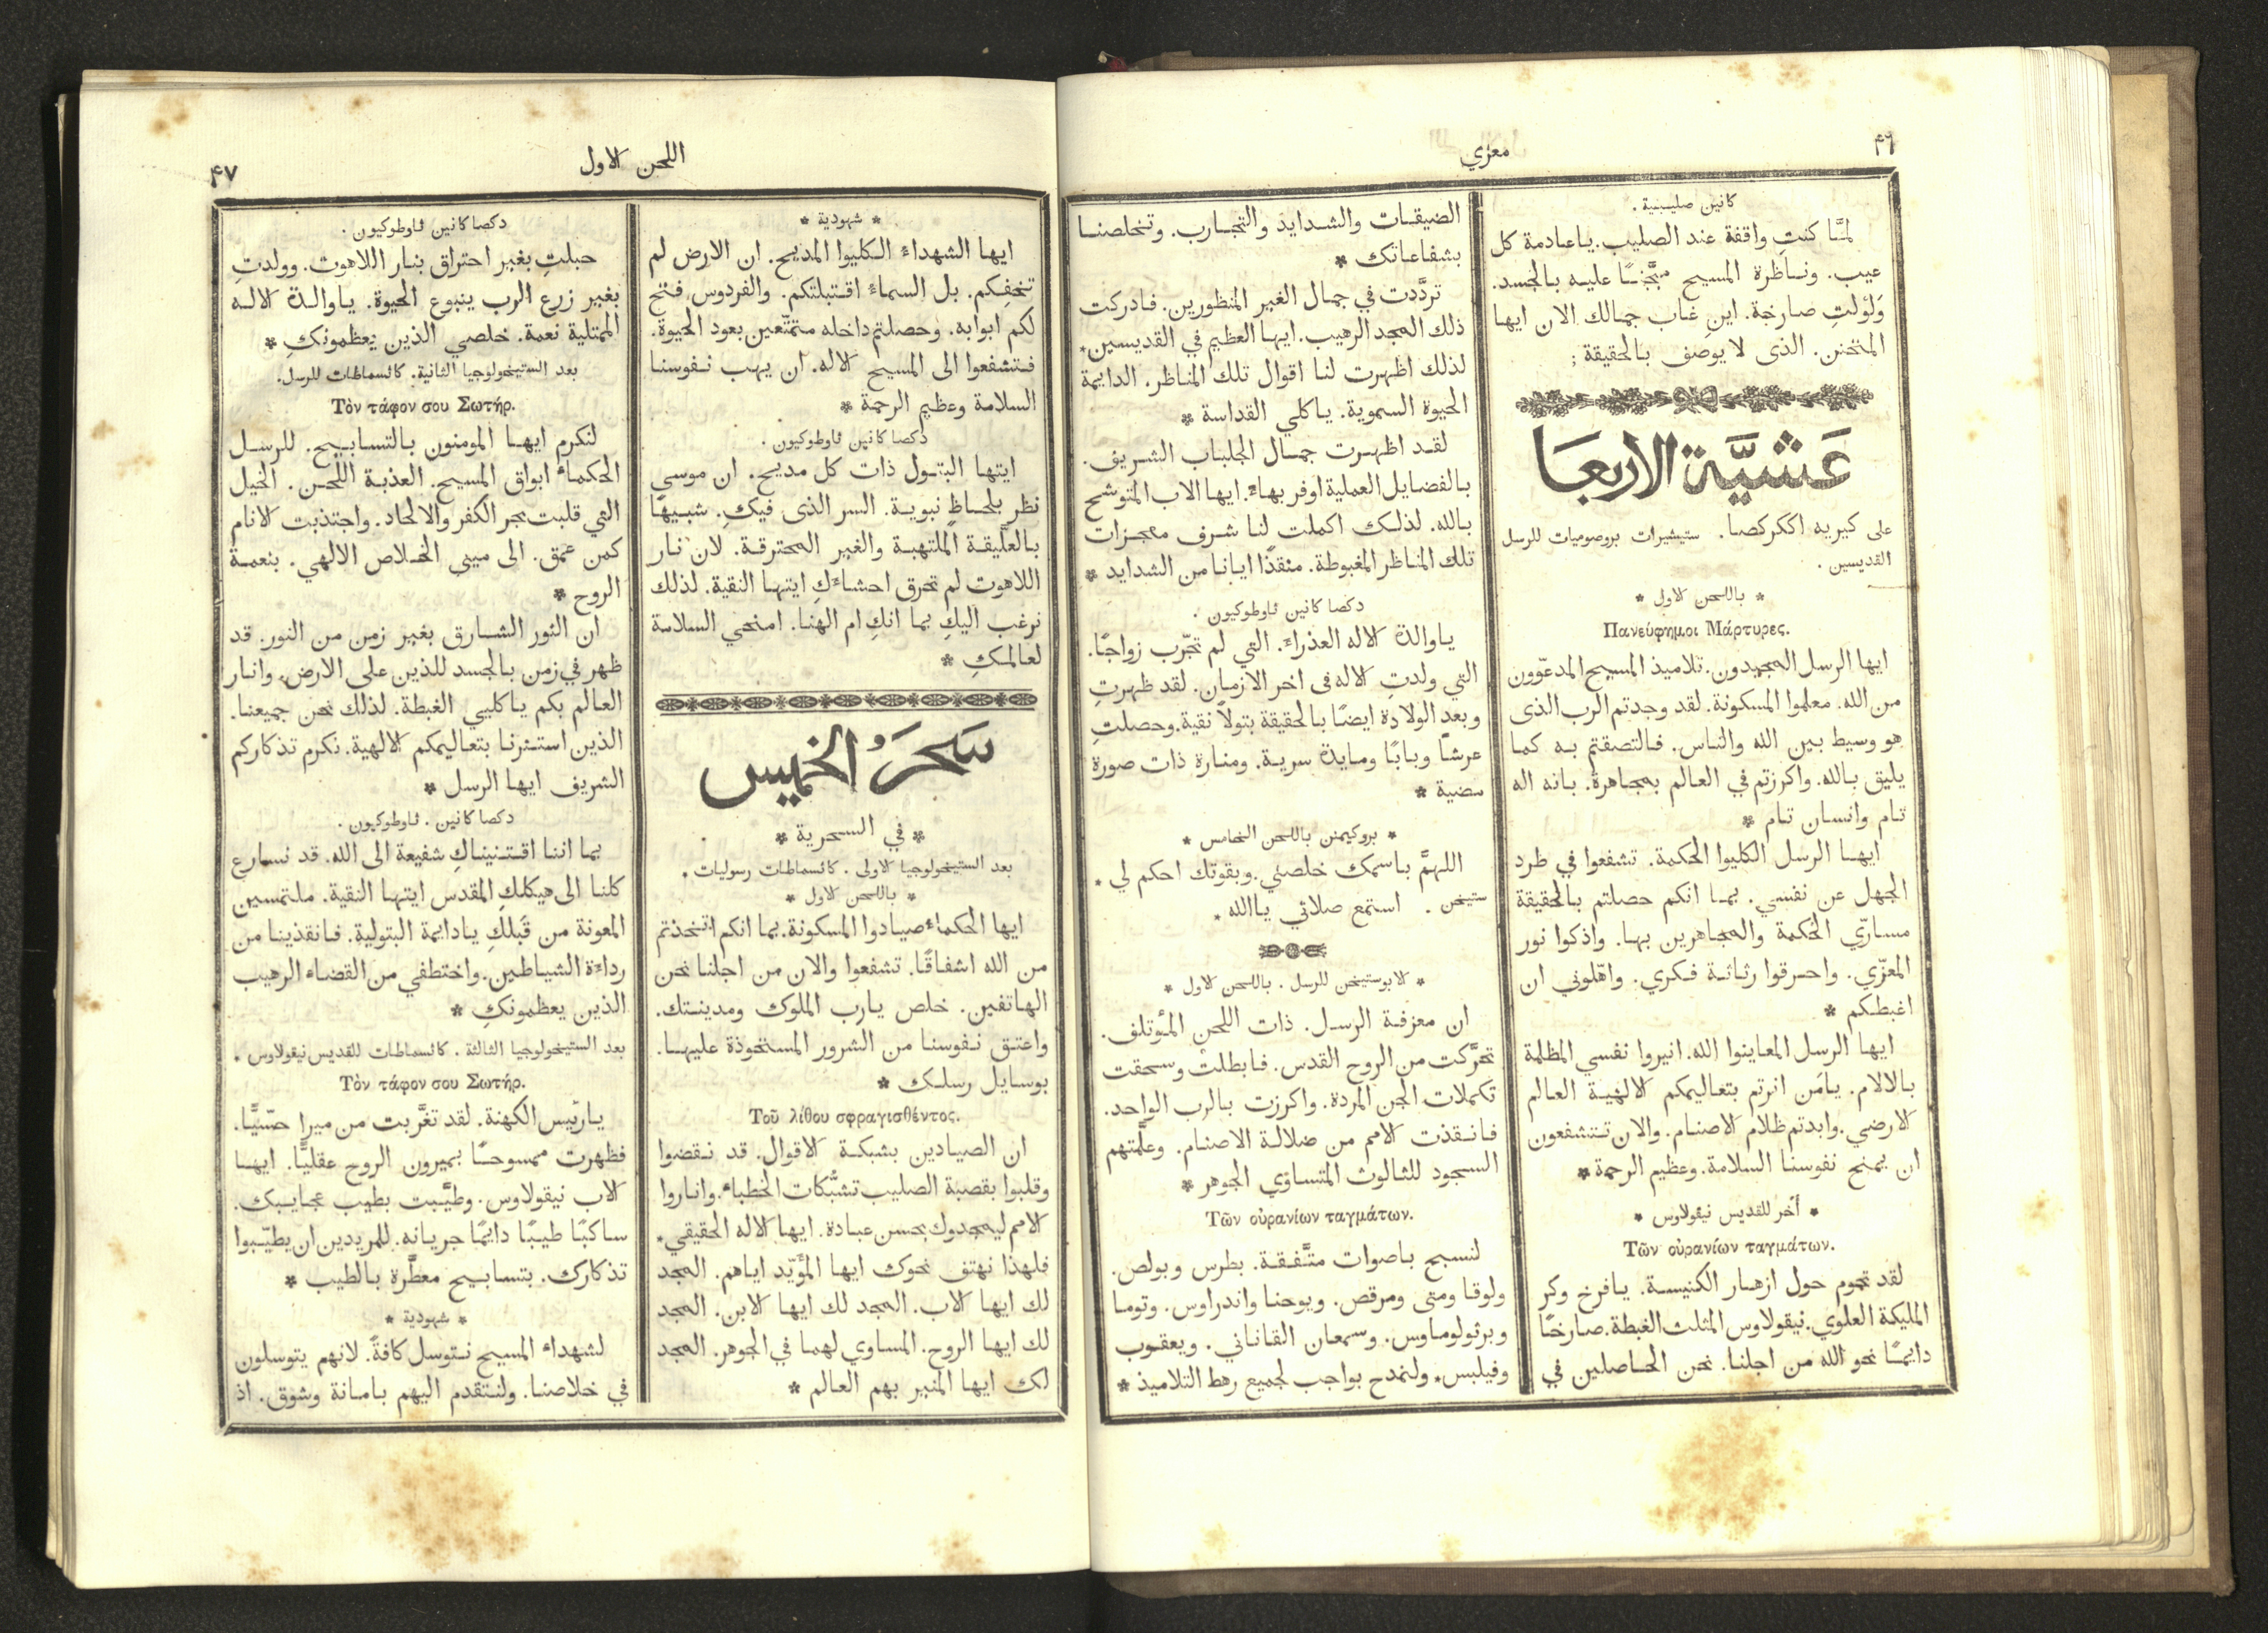 ٤٦
معزي
كانين صليبية .
لمَّا كنتِ واقفة عند الصليب. ياعادمة كل
عيب. وناظرة المسيح متجنّنًا عليه بالجسد.
وَلوَلتِ صارخة. اين غاب جمالك الان ايها
المتحنن. الذى لا يوصف بالحقيقة ;
عَشيَّة الاربعَا
على كيريه اككركصا . ستيشيرات بروصوميات للرسل
القديسين .
* باللحن الاول *
Πανεύφημοι Μάρτυρες.
ايها الرسل المجيدون. تلاميذ المسيح المدعّوون
من الله. معلموا المسكونة. لقد وجدتم الرب الذى
هو وسيط بين الله والناس. فالتصقتم به كما
يليق بالله. واكرزتم في العالم بمجاهرة. بانه اله
تام وانسان تام *
ايها الرسل الكليوا الحكمة. تشفعوا في طرد
الجهل عن نفسي. بما انكم حصلتم بالحقيقة
مسارّي الحكمة والمجاهرين بها. واذكوا نور
المعزّي. واحرقوا رثاثة فكري. واهّلوني ان
اغبطكم *
ايها الرسل المعاينوا الله. انيروا نفسي المظلمة
بالالام. يامَن انرتم بتعاليمكم الالهية العالم
الارضي. وابدتم ظلام الاصنام. والان تتشفعون
ان يمنح نفوسنا السلامة. وعظيم الرحمة *
* أخر للقديس نيقولاوس *
Τῶν οὐρανίων ταγμάτων.
لقد تحوم حول ازهار الكنيسة. يافرخ وكر
المليكة العلوي. نيقولاوس المثلث الغبطة. صارخًا
دايمًا نحو الله من اجلنا. نحن الحاصلين في
الضيقات والشدايد والتجارب. وتخلصنا
بشفاعاتك *
تردَّدت في جمال الغير المنظورين. فادركت
ذلك المجد الرهيب. ايها العظيم في القديسين.
لذلك اظهرت لنا اقوال تلك المناظر. الدايمة
الحيوة السموية. ياكلي القداسة *
لقد اظهرت جمال الجلباب الشريف.
بالفضايل العملية اوفر بهاءً. ايها الاب المتوشح
بالله. لذلك اكملت لنا شرف معجزات
تلك المناظر المغبوطة. منقذًا ايانا من الشدايد *
دكصا كانين ثاوطوكيون .
ياوالدة الاله العذراءَ. التي لم تجرّب زواجًا.
التي ولدتِ الاله فى اخر الازمان. لقد ظهرتِ
وبعد الولادة ايضًا بالحقيقة بتولاً نقية. وحصلتِ
عرشًا وبابًا ومايدة سرية. ومنارة ذات صورة
مضية *
* بروكيمنن باللحن الخامس *
اللهمَّ باسمك خلصني. وبقوتك احكم لي *
ستيخن . استمع صلاتي ياالله *
* لابوستيخن للرسل . باللحن الاول *
ان معزفة الرسل. ذات اللحن المؤتلف.
تحرَّكت من الروح القدس. فابطلتْ وسحقت
تكملات الجن المردة. واكرزت بالرب الواحد.
فانقذت الامم من ضلالة الاصنام. وعلَّمتهم
السجود للثالوث المتساوي الجوهر *
Τῶν οὐρανίων ταγμάτων.
لنسبح باصوات متَّفقة. بطرس وبولص.
ولوقا ومتى ومرقص. ويوحنا واندراوس. وتوما
وبرثولوماوس. وسمعان القاناني. ويعقوب
وفيلبس. ولنمدح بواجب لجميع رهط التلاميذ *
اللحن الاول
٤٧
* شهودية *
ايها الشهداءَ الكليوا المديح. ان الارض لم
تخفِكم. بل السماءَ اقتبلتكم. والفردوس فتح
لكم ابوابه. وحصلتم داخله متمتّعين بعود الحيوة.
فتشفعوا الى المسيح الاله. ان يهب نفوسنا
السلامة وعظيم الرحمة *
دكصا كانين ثاوطوكيون .
ايتها البتول ذات كل مديح. ان موسى
نظر بلحاظٍ نبوية. السر الذى فيكِ. شبيهًا
بالعلَّيقة الملتهبة والغير المحترقة. لان نار
اللاهوت لم تحرق احشاءَكِ ايتها النقية. لذلك
نرغب اليكِ بما انكِ ام الهنا. امنحي السلامة
لعالمكِ *
سَحَرُ الخميس
* في السحرية *
بعد الستيخولوجيا الاولى . كاثسماطات رسوليات .
* باللحن الاول *
ايها الحكماءَ صيادوا المسكونة. بما انكم اتخذتم
من الله اشفاقًا. تشفعوا والان من اجلنا نحن
الهاتفين. خلص يارب الملوك ومدينتك.
واعتق نفوسنا من الشرور المستحوذة عليها.
بوسايل رسلك *
Τοῦ λίθου σφραγισθέντος.
ان الصيادين بشبكة الاقوال. قد نقضوا
وقلبوا بقصبة الصليب تشبُّكات الخطباء. واناروا
الامم ليمجدوك بحسن عبادة. ايها الاله الحقيقي.
فلهذا نهتف نحوك ايها المؤَيّد اياهم. المجد
لك ايها الاب. المجد لك ايها الابن. المجد
لك ايها الروح. المساوي لهما في الجوهر. المجد
لك ايها المنير بهم العالم *
دكصا كانين ثاوطوكيون .
حبلتِ بغير احتراق بنار اللاهوت. وولدتِ
بغير زرع الرب ينبوع الحيوة. ياوالدة الاله
الممتلية نعمة. خلصي الذين يعظمونكِ *
بعد الستيخولوجيا الثانية. كاثسماطات للرسل.
Τὸν τάφον σου Σωτήρ.
لنكرم ايها المومنون بالتسابيح. للرسل
الحكماءَ ابواق المسيح. العذبة اللحن. الخيل
التي قلبت بحر الكفر والالحاد. واجتذبت الانام
كمن عمق. الى ميني الخلاص الالهي. بنعمة
الروح *
ان النور الشارق بغير زمن من النور. قد
ظهر في زمن بالجسد للذين على الارض. وانار
العالم بكم ياكليي الغبطة. لذلك نحن جميعنا.
الذين استنرنا بتعاليمكم الالهية. نكرم تذكاركم
الشريف ايها الرسل *
دكصا كانين . ثاوطوكيون .
بما اننا اقتنيناكِ شفيعة الى الله. قد نسارع
كلنا الى هيكلكِ المقدس ايتها النقية. ملتمسين
المعونة من قَبلكِ يادايمة البتولية. فانقذينا من
رداءَة الشياطين. واختطفي من القضاء الرهيب
الذين يعظمونكِ *
بعد الستيخولوجيا الثالثة . كاثسماطات للقديس نيقولاوس .
Τὸν τάφον σου Σωτήρ.
يارئيس الكهنة. لقد تغرَّبت من ميرا حسّيًّا.
فظهرت ممسوحًا بميرون الروح عقليًّا. ايها
الاب نيقولاوس. وطيَّبت بطيب عجايبك.
ساكبًا طيبًا دايمًا جريانه. للمريدين ان يطيّبوا
تذكارك. بتسابيح معطَّرة بالطيب *
* شهودية *
لشهداء المسيح نتوسل كافةً. لانهم يتوسلون
في خلاصنا. ولنتقدم اليهم بامانة وشوق. اذ